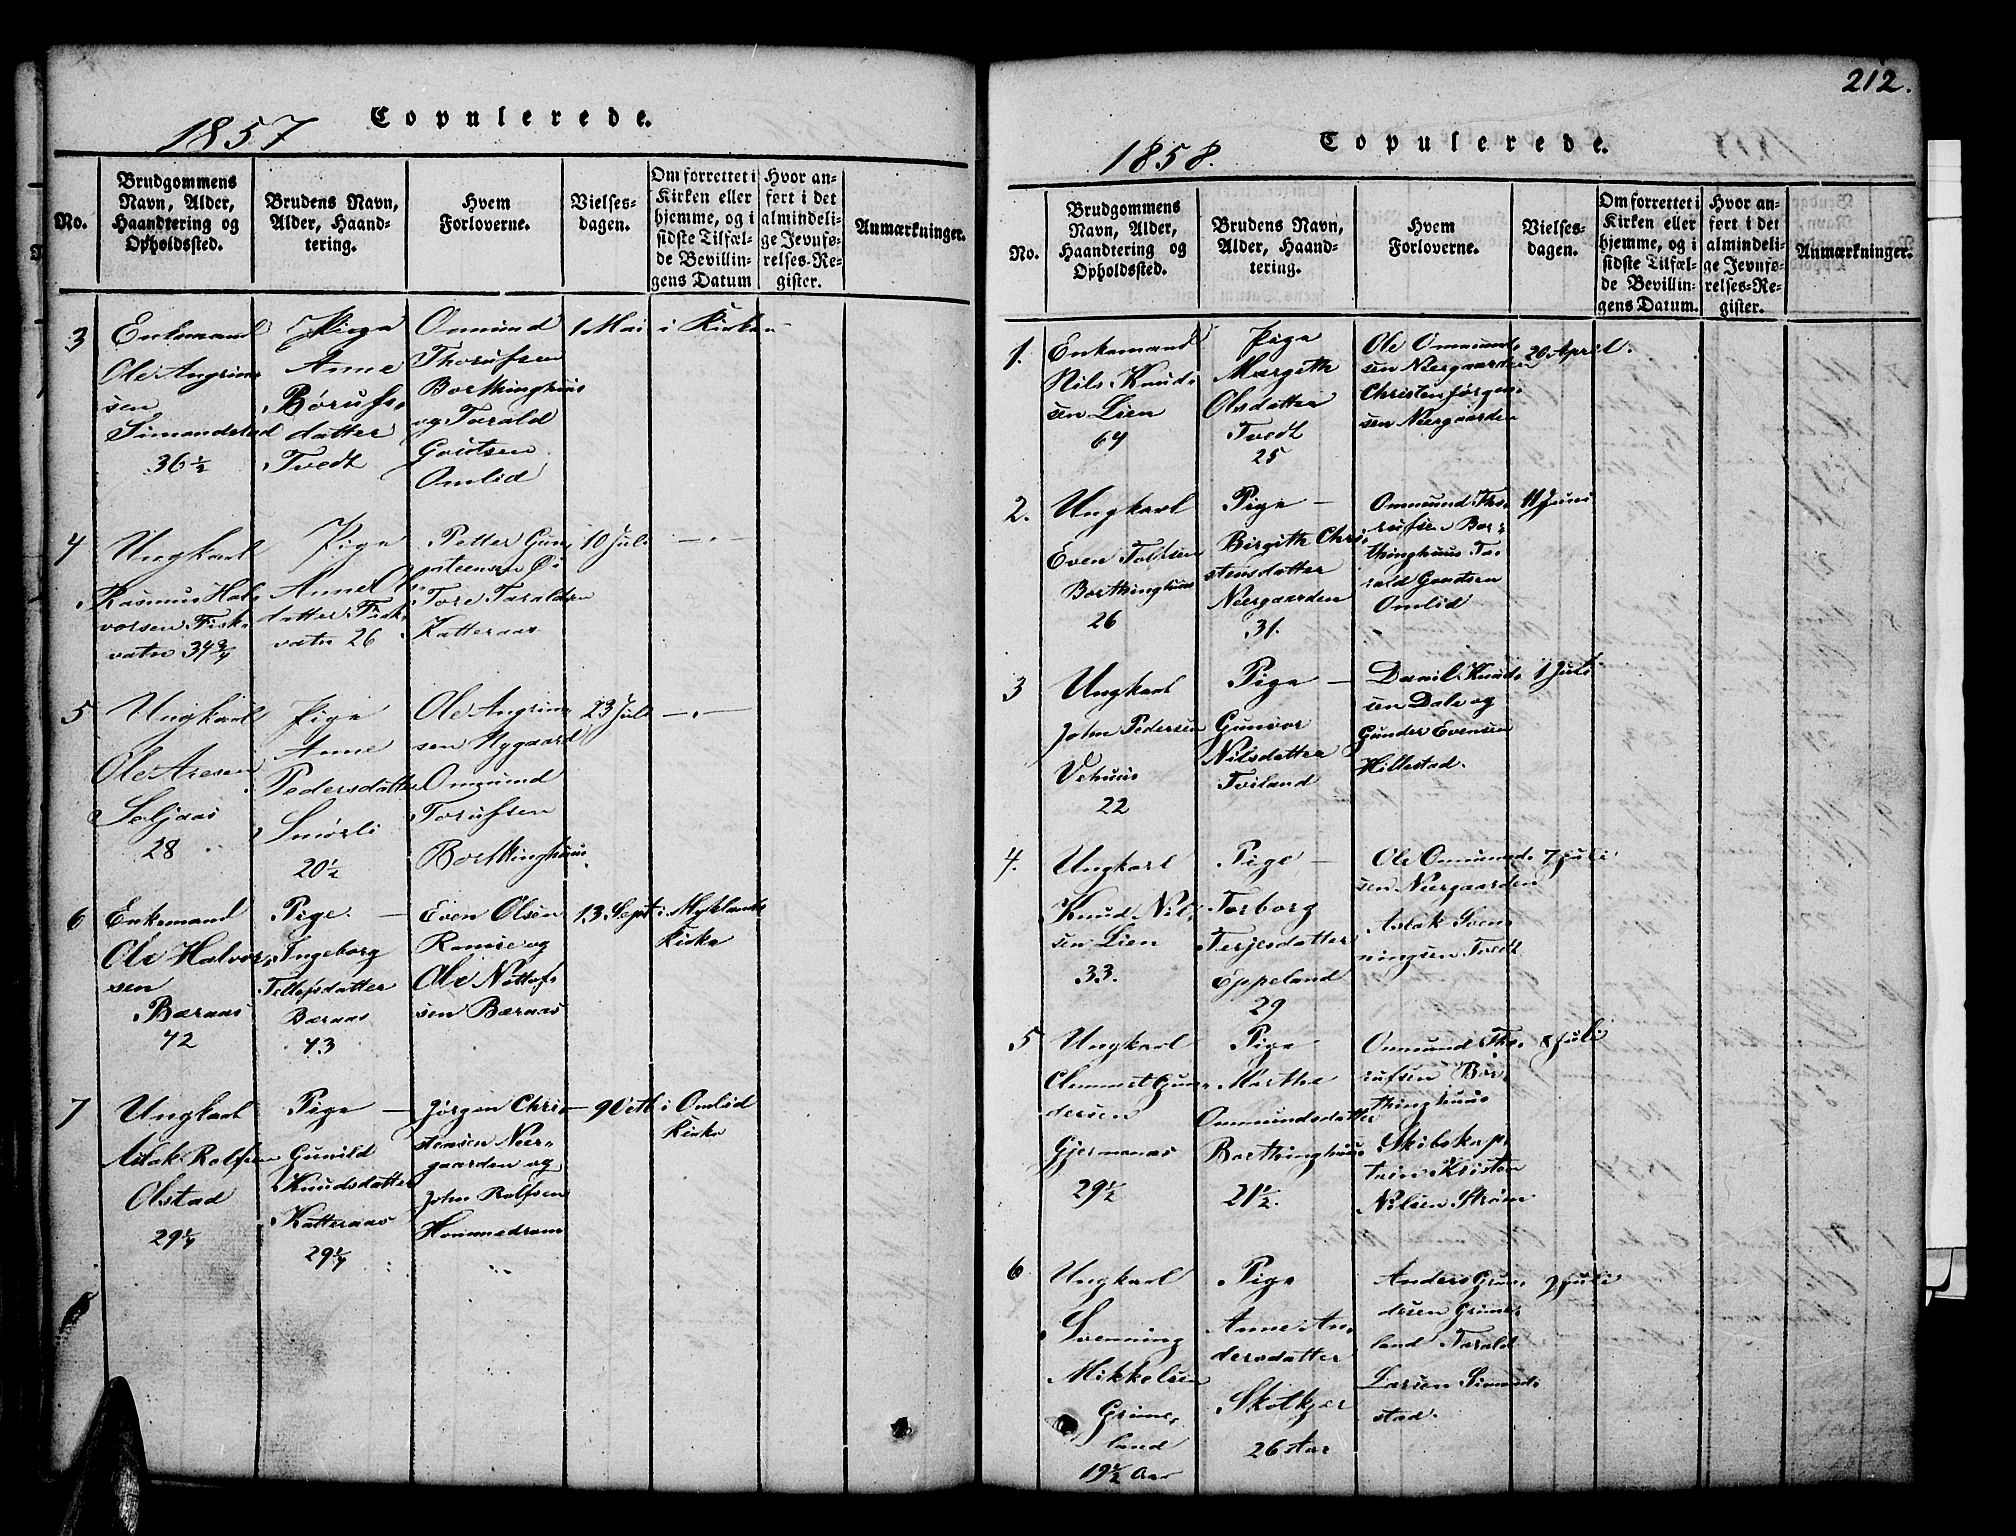 1857
Copulerede.
No.
Brudgommens
Navn, Alder,
Haandtering og
Opholdssted.
Brudens Navn,
Alder, Haand-
tering.
Hvem
Forloverne.
Vielses-
dagen.
Om forrettet i
Kirken eller
hjemme, og i
sidste Tilfæl-
de Bevillin-
gens Datum
Hvor an-
ført i det
almindeli-
ge Jevnfø-
relses-Re-
gister.
Anmærkninger.
3
Enkemand
Ole Angrims
sen
Simonstad
36½
Pige
Anne
Børufs-
datter
Tvedt
Omund
Thorufsen
Borthinghuus
og Torald
Guutsen
Omlid
1 Mai
i Kirken
4
Ungkarl
Rasmus Hal-
vorsen Fisk-
vatn 34¾
Pige
Anne
datter Fisk-
vatn 26
Petter Gun-
steensen
Tore Taraldsen
Katteraas
10 Juli
— " —
5
Ungkarl
Ole Aresen
Seljaas
28
Pige
Anne
Pedersdatter
Smørli
20½
Ole Angrim-
sen Nygaard
Omund
Torufsen
Borthinghuus
23 Juli
— " —
6
Enkemand
Ole Halvor-
sen
Bæraas
72
Pige —
Ingeborg
Tellefsdatter
Bæraas
43
Even Olsen
Ramse og
Ole Nottof-
sen Bæraas
13 Sept
i Myklands
Kirke
7
Ungkarl
Aslak Rolfsen
Olstad
29¼
Pige —
Gunild
Knudsdatter
Katteraas
29¼
Jørgen Chri-
stensen Neer-
gaarden og
John Rolfsen
Hommedram
9 Octb
i Omlid
Kirke
212.
1858.
Copulerede.
No.
Brudgommens
Navn, Alder,
Haandtering og
Opholdssted.
Brudens Navn,
Alder, Haand-
tering.
Hvem
Forloverne.
Vielses-
dagen.
Om forrettet i
Kirken eller
hjemme, og i
sidste Tilfæl-
de Bevillin-
gens Datum.
Hvor an-
ført i det
almindeli-
ge Jevnfø-
relses-Re-
gister.
Anmærkninger.
1.
Enkemand
Nils Knud-
sen Lien
64
Pige
Margith
Olsdatter
Tvedt
25
Ole Omund-
sen Neergaarden
Christen Jørgen-
sen Neergaarden
20 April.
2.
Ungkarl
Even Tolfsen
Borthinghuus
26
Pige —
Birgith Chri-
stensdatter
Neergaarden
31.
Ommund Tho-
rufsen Bor-
thinghuus To-
rald Guutsen
Omlid
11 Juni
3
Ungkarl
John Pedersen
Vehuus
22
Pige —
Gunvor
Nilsdatter
Tviland
Daniel Knud-
sen Dale og
Gunder Evensen
Hillestad.
1 Juli
4.
Ungkarl
Knud Nil-
sen Lien
33.
Pige —
Torborg
Terjesdatter
Eppeland
29
Ole Omund-
sen Neergaarden
Aslak Sven-
ningsen Tvedt
7 Juli
5
Ungkarl
Clemmet Gun-
dersen
Gjermanas
29½
Pige
Marthe
Ommundsdatter
Borthinghuus
21½.
Ommund Tho-
rufsen Bor-
thinghuus
Skibskap-
tein Kristen
Nilsen Strøm
8 Juli
6
Ungkarl
Svenning
Mikkelsen
Grime-
land
19½ Aar
Pige
Anne An-
dersdatter
Skolkjer
26 Aar
Anders Gun-
dersen Grime-
land Torald
Larsen Simond-
stad.
2 Juli